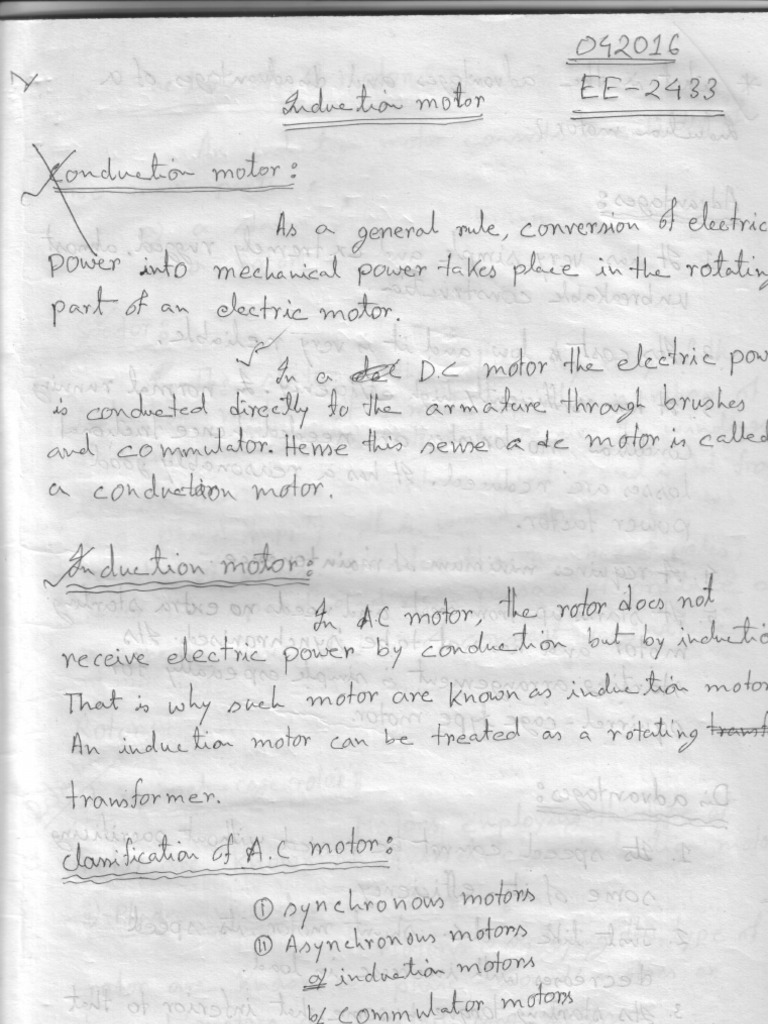 042016
EE-2433
Induction motor
Conduction motor:
As a general rule, conversion of electric
power into mechanical power takes place in the rotating
part of an electric motor.
In a DC motor the electric pow
is conducted directly to the armature through brushes
and commulator. Hense this sense a dc motor is called
a conduction motor.
Induction motor:
In AC motor, the rotor does not
receive electric power by conduction but by inductio
That is why such motor are known as induction motor
An induction motor can be treated as a rotating transf
transformer.
Classification of A.C motor:
(i) synchronous motors
(ii) Asynchronous motors
a/ induction motors
b/ commulator motors